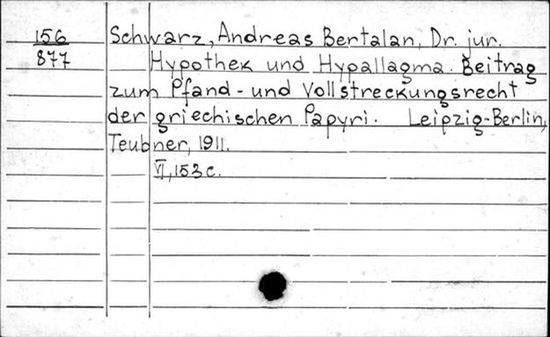 156
877
Schwarz, Andreas Bertalan, Dr. jur.
Hypothek und Hypallagma. Beitrag
zum Pfand- und Vollstreckungsrecht
der griechischen Papyri. Leipzig-Berlin,
Teubner, 1911.
VI, 153 c.